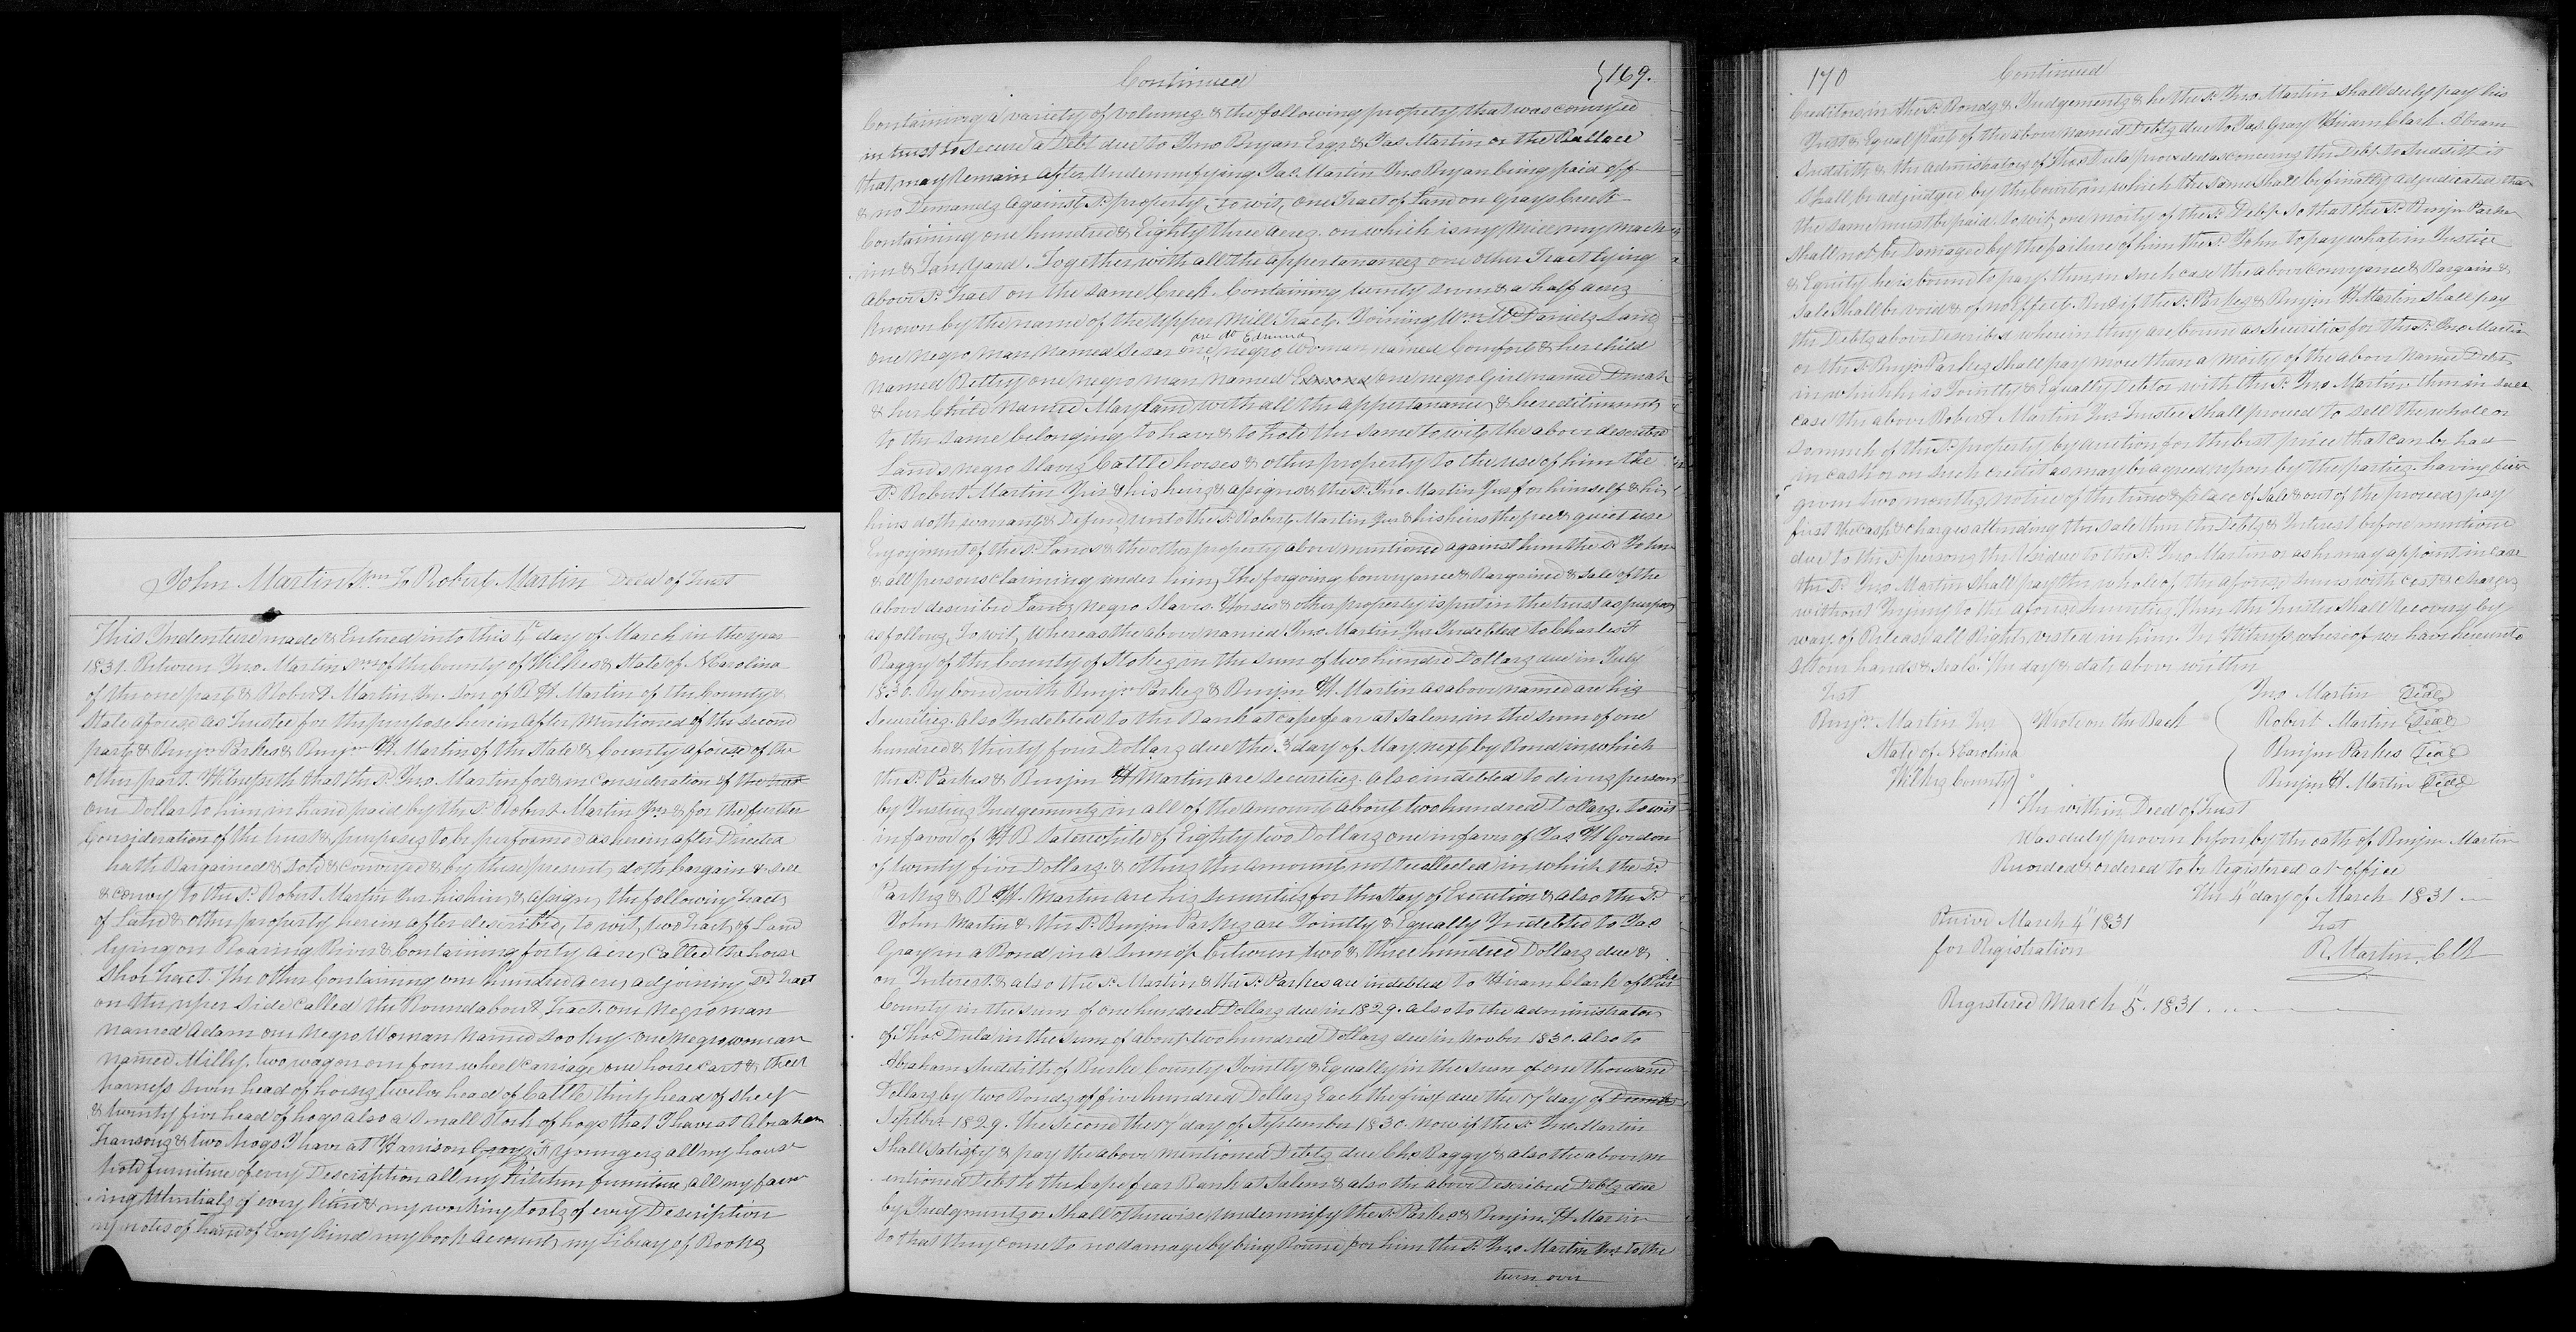 John Martin Snr To Robert Martin Deed of Trust
This Indenture made & Entered into this 4th day of March in the year
1831. Between Jno. Martin Snr of the County of Wilkes & State of N Carolina
of the one part & Robert Martin Jnr. Son of B H Martin of the County &
State aforesd as Trustee for the purpose herein after mentioned of the second
part & Benjn Parkes & Benjn H Martin of the State & County aforesd of the
other part. Witnesseth that the sd Jno Martin for & in Consideration of
one Dollar to him in hand paid by the sd Robert Martin Jnr & for the further
Consideration of the trust & purposes to be performed as herein after Directed
hath Bargained & Sold & Conveyed & by these present doth bargain & sell
& convey to the sd Robert Martin Jnr his heirs & assigns the following Tracts
of Land & other property herein after described, to wit, two Tracts of Land
lying on Roaring River & Containing forty acres Called the horse
Shoe Tract. The other Containing one hundred acres adjoining sd Tract
on the uper side called the Roundabout Tract. one negro man
named Adam one Negro Woman Named Sooky one Negro woman
named Milly. two wagon one four wheel carriage one horse cart & their
harness seven head of horses twelve head of Cattle thirty head of sheep
& twenty five head of hogs also a small stock of hogs that I have at Abraham
& two hogs I have at Harrison Youngers all my house
hold furniture of every Description all my Kitchen furniture, all my farm
ing utentials of every kind & my working tools of every Description
my notes of hand of Every kind my book accounts my Library of Books
Continued } 169.
Containing a variety of volumes & the following property that was conveyed
in trust to secure a Debt due to Jno Bryan Esqr & Jas Martin or the Ballace
that may remain after Undemnifying Jas. Martin Jno Bryan being paid off
& no Demands Against sd property, to wit, one Tract of Land on Grays Creek
Containing one hundred & Eighty three acres on which is my Mill my Mach
ine & Tan Yard. Together with all the appertanances one other Tract lying
above sd Tract on the same Creek Containing twenty seven & a half acres
Known by the name of the upper Mill Tract. Joining Wm McDaniels Land
one do Edmund
one Negro Man Named Sesar one negro Woman named Comfort & her child
named Bettsy one negro man named one negro Girl named Dinah
& her Child named Mary Land with all the appertanances & hereditiments
to the same belonging to have & to hold the same to wit, the above described
Lands negro slaves Cattle horses & other property to the use of him the
sd Robert Martin Jnr & his heirs & assigns & the sd Jno Martin Jnr for himself & his
heirs doth warrant & Defend unto the sd Robert Martin Jnr & his heirs the free & quiet use
Enjoyment of the sd Lands & the other property above mentioned against him the sd John
& all persons claiming under him, The forgoing Conveyance & Bargained & Sale of the
above described Lands Negro Slaves. Horses & other property is put in the trust as purpose
as follows, To wit, Whereas the above named Jno Martin Jnr Indebted to Charles F
Baggy of the County of Stokes in the sum of two hundred Dollars due in July
1830. By bond with Benjn Parkes & Benjn H Martin as above named are his
Securities. Also Indebted to the Bank at cape fear at Salem in the sum of one
hundred & thirty four Dollars due the 3 day of May next by Bond in which
the sd Parkes & Benjn H Martin are securities. also indebted to divers persons
by Justices Judgements in all of the amount about two hundred Dollars. to wit
in favor of H B Saterwhite of Eighty two Dollars one in favor of Jas H Gordon
of twenty five Dollars. & others the amount not recollected in which the sd
Parkes & B H. Martin are his securities for the Stay of Execution & also the sd
John Martin & the sd Benjn Parkes are Jointly & Equally Indebted to Jas
Gray in a Bond in a sum of between two & three hundred Dollars due &
on Interest. & also the sd Martin & the sd Parkes are indebted to Hiram Clark of
County in the sum of one hundred Dollars due in 1829. also to the administrators
of Thos Dula in the sum of about two hundred Dollars due in Novbr 1830. also to
Abraham Suddith of Burke County Jointly & Equally in the sum of one thousand
Dollars by two Bonds of five hundred Dollars Each the first due the 17th day of
Septbr. 1829. the Second the 17 day of September 1830. now if the sd Jno Martin
Shall satisfy & pay the above mentioned Debts due Chs Baggy & also the above m
entioned Debt to the Cape fear Bank at Salem & also the above Described Debts due
by Judgments or Shall otherwise undemnify the sd Parkes & Benjn. H Martin
So that they come to no damage by being Bound for him the sd Jno Martin Jnr to the
turn over
170 Continued
Creditors in the sd Bonds & Judgements & he the sd Jno Martin shall duly pay his
Just & Equal part of the above named Debts due to Jas. Gray Hiram Clark Abram
Suddith & the admisrators of Thos Dula provided as concerning the Debt to Suddith it
Shall be adjudged by the Court in which the same shall be finally adjudicated that
the same must be paid. to wit, one moity of the sd Debt. So that the sd Benjn Parkes
shall not be Damaged by the failure of him the sd John to pay what in Justice
& Equity he is bound to pay. then in such case the above conveyance & Bargain &
Sale shall be void & of no effect. And if the sd Parkes & Benjn H Martin shall pay
the Debts above Described wherein they are bound as Securities for the sd Jno Martin
or the sd Benjn Parkes shall pay more than a moity of the above named Debts
in which he is Jointly & Equally Debtor with the sd Jno Martin. then in such
case the above Robert Martin Jnr Trustee shall proceed to sell the whole or
so much of the sd property by auction for the best price that can be had
in cash or on such credit as may be agreed upon by the parties having first
given two months notice of the time & place of Sale & out of the proceeds pay
first the cost & charges attending the sale then the Debts & Interest before mentioned
due to the sd persons the Residue to the sd Jno Martin or as he may appoint in case
the sd Jno Martin shall pay the whole of the aforesd sums with cost & charges
without Injury to the aforesd securities, then the Trustee shall Recovey by
way of Release all Right vested in him. In Witness whereof we have hereunto
set our hands & seals. The day & date above written
Test Jno Martin Seal
Benjn Martin Jnr Wrote on the Back Robert Martin Seal
State of N Carolina Benjn Parkes Seal
Wilkes County Benjn H Martin Seal
The within Deed of Trust
Was duly proven before by the oath of Benjn Martin
Recorded & ordered to be Registered at office
The 4th day of March 1831
Receivd March 4th 1831 Test
for Registration R. Martin, Clk
Registered March 5. 1831